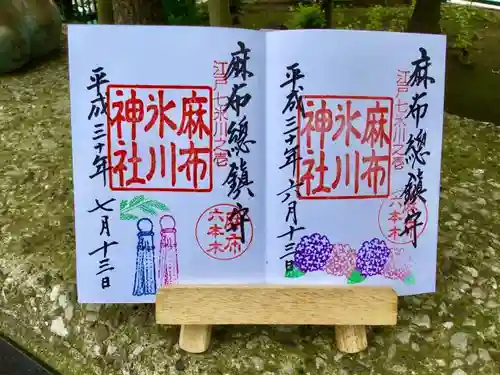 麻布總鎮守
江戸七氷川之壱
麻布
氷川
神社
六本木
平成三十年
六月十三日
麻布總鎮守
江戸七氷川之壱
麻布
氷川
神社
六本木
平成三十年
七月十三日